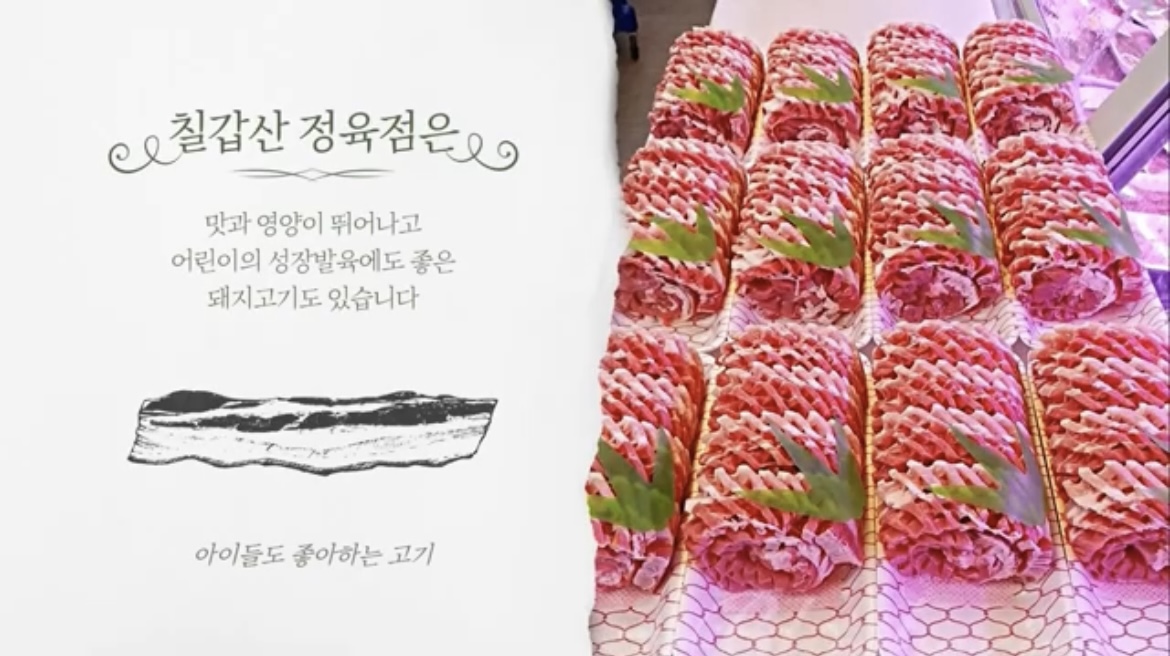 칠갑산 정육점은
맛과 영양이 뛰어나고
어린이의 성장발육에도 좋은
돼지고기도 있습니다
아이들도 좋아하는 고기